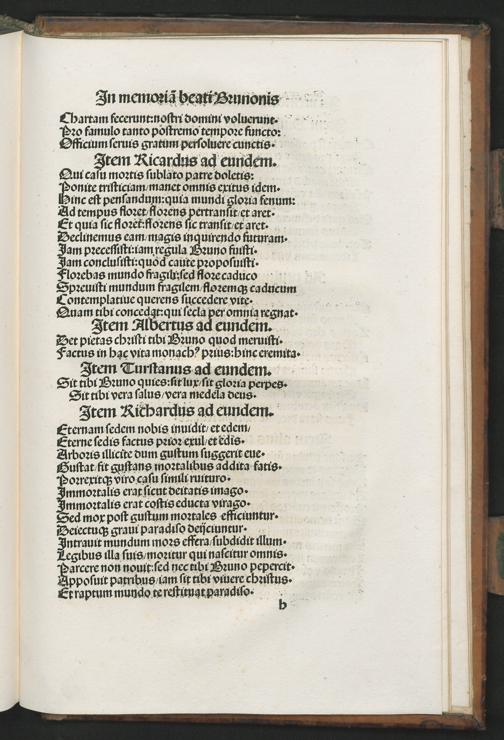 In memoriā beati Brunonis
Chartam fecerunt: nostri domini voluerunt.
Pro famulo tanto postremo tempore functo:
Officium seruis gratum persoluere cunctis.
Item Ricardus ad eundem.
Qui casu mortis sublato patre doletis:
Ponite tristiciam/ manet omnis exitus idem.
Hinc est pensandum: quia mundi gloria fenum:
Ad tempus floret/ florens pertransit/ et aret.
Et quia sic floret: florens sic transit/ et aret.
Declinemus eam/ magis inquirendo futuram.
Jam precessisti: iam regula Bruno fuisti.
Jam conclusisti: quod caute proposuisti.
Florebas mundo fragili: sed flore caduco
Spreuisti mundum fragilem/ floremq; caducum
Contemplatiue querens succedere vite.
Quam tibi concedat: qui secla per omnia regnat.
Item Albertus ad eundem.
Det pietas christi tibi Bruno quod meruisti.
Factus in hac vita monachꝰ prius: hinc eremita.
Item Turstanus ad eundem.
Sit tibi Bruno quies: sit lux/ sit gloria perpes.
Sit tibi vera salus/ vera medela deus.
Item Richardus ad eundem.
Eternam sedem nobis inuidit/ et edem/
Eterne sedis factus prior exul/ et edis.
Arboris illicite dum gustum suggerit eue.
Gustat/ fit gustans mortalibus addita fatis.
Porrexitq; viro casu simili ruituro.
Immortalis erat sicut deitatis imago.
Immortalis erat costis educta virago.
Sed mox post gustum mortales efficiuntur.
Deiectuq; graui paradiso deijciuntur.
Intrauit mundum mors effera/ subdidit illum.
Legibus illa suis/ moritur qui nascitur omnis.
Parcere non nouit: sed nec tibi Bruno pepercit.
Apposuit patribus/ iam sit tibi viuere christus.
Et raptum mundo te restituat paradiso.
b